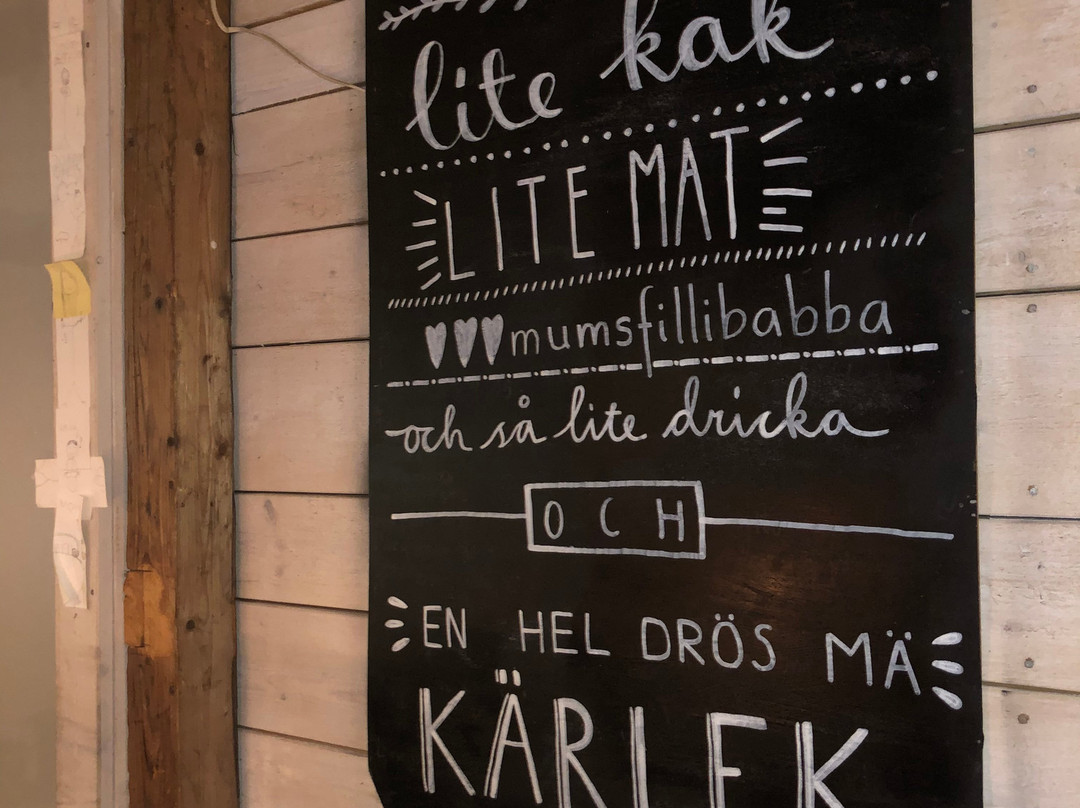 lite kak
LITE MAT
mumsfillibabba
och så lite dricka
OCH
EN HEL DRÖS MÄ
KÄRLEK